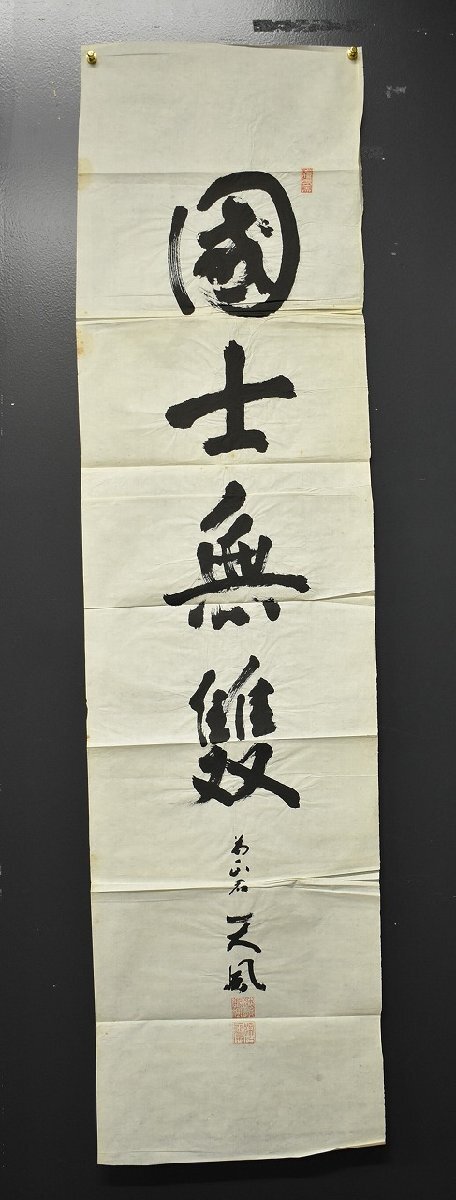 國士無雙
為正君 天風